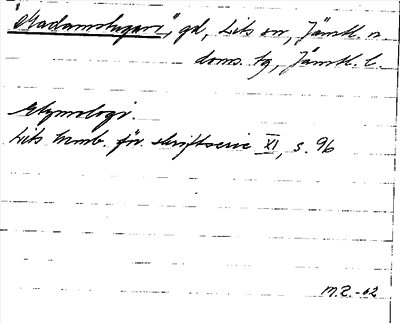 "Madamstugan", gd, Lits sn, Jämtl. n.
doms. tg, Jämtl. l.
Etymologi.
Lits hemb. för. skriftserie XI, s. 96
M.R. -62